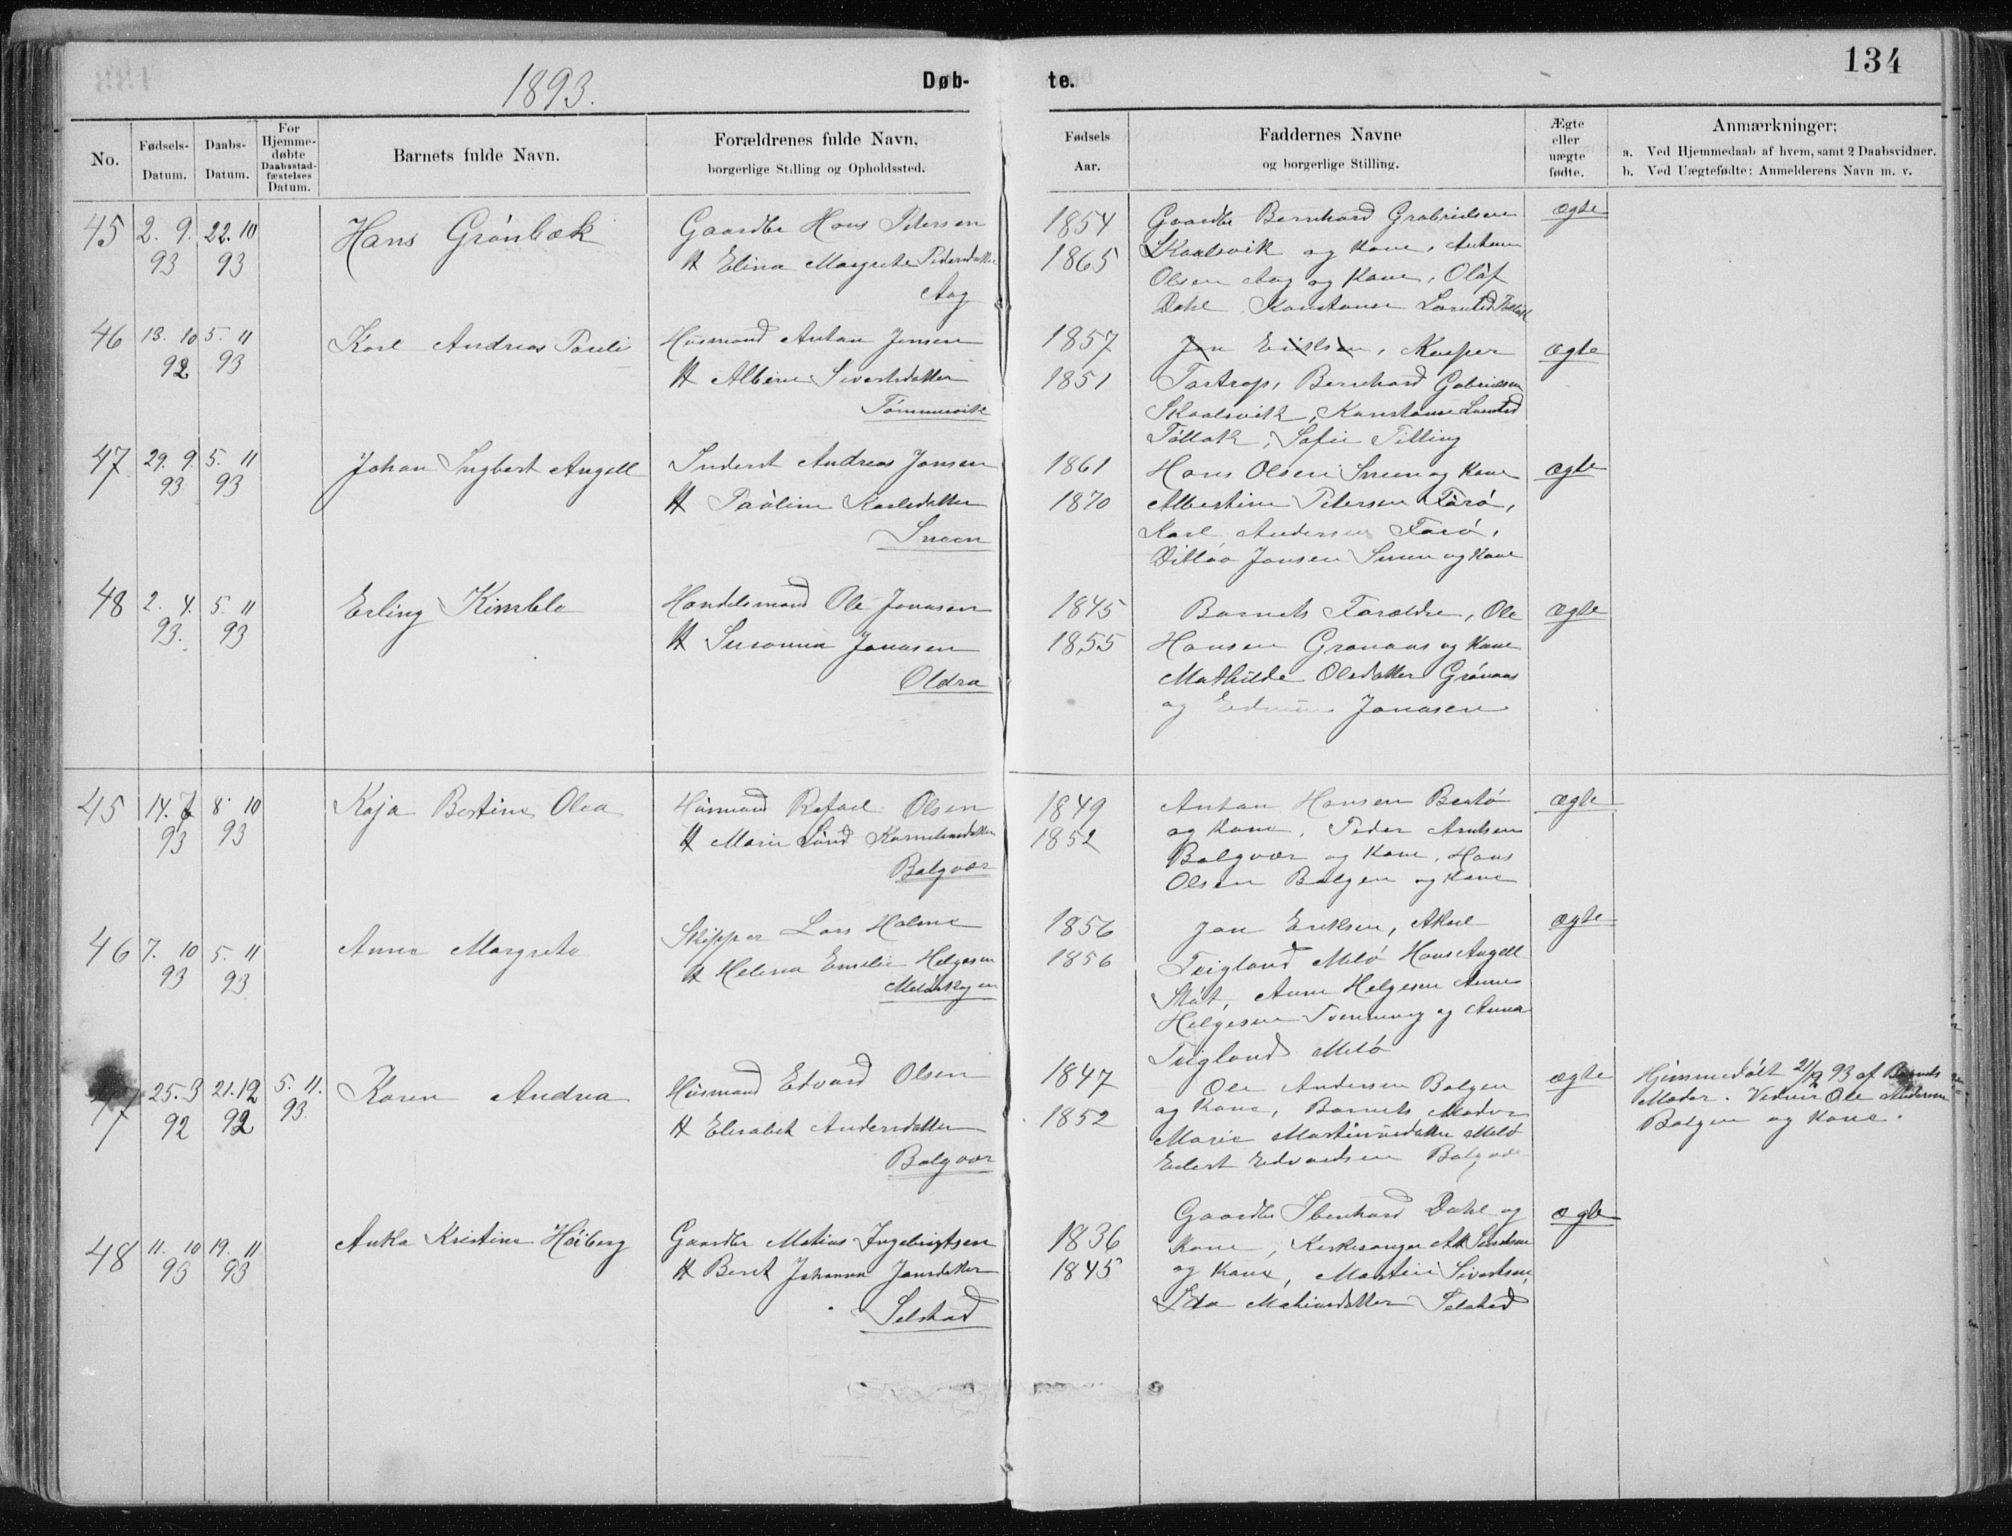 134
1893.
Døb- te.
No.
Fødsels-
Datum.
Daabs-
Datum.
For
Hjemme-
døbte
Daabsstad-
fæstelses
Datum.
Barnets fulde Navn.
Forældrenes fulde Navn,
borgerlige Stilling og Opholdssted.
Fødsels
Aar.
Faddernes Navne
og borgerlige Stilling.
Ægte
eller
uægte
fødte.
Anmærkninger;
a. Ved Hjemmedaab af hvem, samt 2 Daabsvidner.
b. Ved Uægtefødte: Anmelderens Navn m. v.
45 2. 9. 22. 10 Hans Grönbæk Gaardbr Hans Petersen 1854 Gaardbr Bernhard Grabrielsen ægte
93 93 H Elina Margrete Pedersdatter 1865 Skaalsvik og Kone, Anton
Aag Olsen Aag og Kone, Oläf
Dahl Konstanse
46 13. 10 5. 11 Karl Andreas Paulis Husmand Anton Jensen 1857 Jon Eriksen, Kasper ægte
92 93 H Albine Sivertsdatter 1851 Tostrop, Bernhard Gabrielsen
Tömmervik Skaalsvik, Konstanse
Sofie Tilling
47 29. 9. 5. 11 Johan Ingbert Angell Inderst Andreas Jonsen 1861 Hans Olsen Sneen og Kone ægte
93 93 H Paüline Karlsdatter 1870 Albertine Petersen Förö,
Sneen Karl Andersen Forö,
Jonsen Sneen og Kone
48 2. 4. 5. 11 Erling Kimble Handelsmand Ole Jonasen 1845 Barnets Forældre, Ole ægte
93. 93 H Susanna Jonasen 1855 Hansen Grønaas og Kone
Oldra Mathilde Olsdatter Grönaas
og Jonasen
45 14. 7 8. 10 Kaja Bertine Olea Husmand Rafael Olsen 1849 Anton Hansen ægte
93 93 H Marie Lünd Korneliusdatter 1852 og Kone, Peder Arntsen
Bolgvær Bolgvær og Kone, Hans
Olsen Bolgen og Kone
46 7. 10 5. 11 Anna Margrete Skipper Lars Holme 1856 Jon Eriksen, Aksel ægte
93 93 H Helena Emilie Helgesen 1856 Teigland Melö Hans Angell
Melöskogen Stöt, Anne Helgesen Anne
Helgesen og Anna
Teigland Melö
47 25. 3 21. 12 5. 11. Karen Andrea Husmand Edvard Olsen 1847 Ole Andersen Bolgen ægte Hjemmedöbt 21/12 93 af Barnets
92 92 93 H Elisabet Andersdatter 1852 og Kone, Barnets Moder Moder. Vidner Ole Andersen
Bolgvær Marie Martinüsdatter Melö Bolgen og Kone.
Edvardsen
48 11. 10 19. 11 Anka Kristine Höiberg Gaardbr Matias Ingebrigtsen 1836 Gaardbr Ibenhard Dahl og ægte
93 93 H Beret Johanna Jonsdatter 1845 Kone, Kirkesanger
Selstad og Kone, Martin Sivertsen,
Ida Selstad